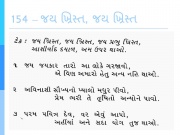 154 – જય ખ્રિસ્ત, જય ખ્રિસ્ત
ટેક : જય ખ્રિસ્ત, જય ખ્રિસ્ત, જય પ્રભુ ખ્રિસ્ત,
આશીર્વાદ દયાળ, અમ ઉપર થાઓ.
૧ જય જયકાર તારો આ લોકે ગરજાવો,
એ વિણ અમારો હેતુ અન્ય નતિ થાઓ.
૨ અવિનાશી સૌખ્યનો પ્યાલો મધુર પીવો,
પ્રેમ ભરી તે તૃષિતો અન્યોને પાવો.
૩ પરમ પવિત્ર દેવ, વર એવું આપો,
અહીંયાં અને સદા યોગ તુજ થાઓ.